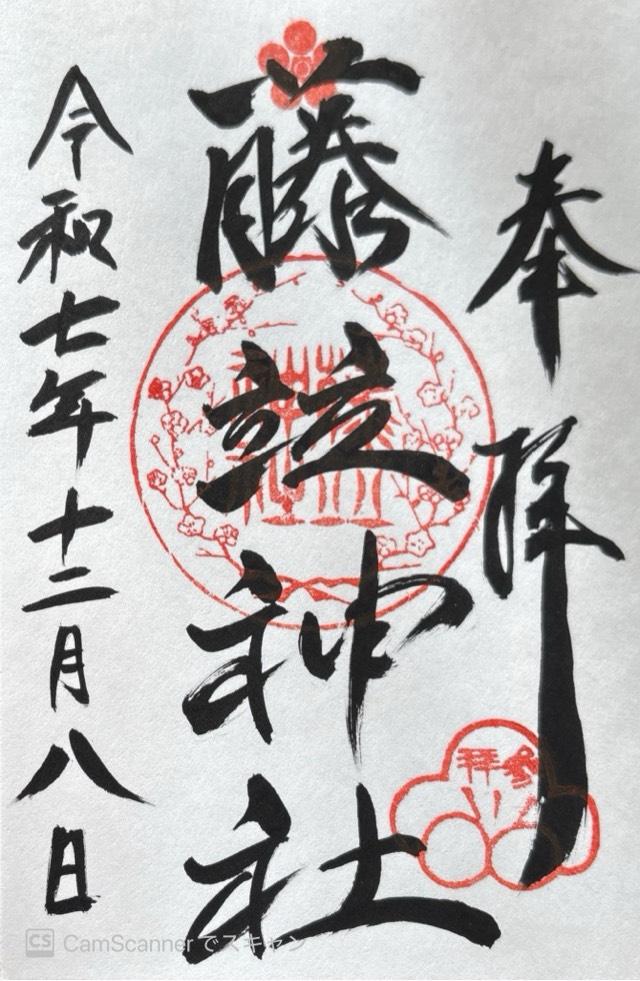 奉拝
藤竝神社
令和七年十二月八日
参拝
CS CamScanner でスキャン